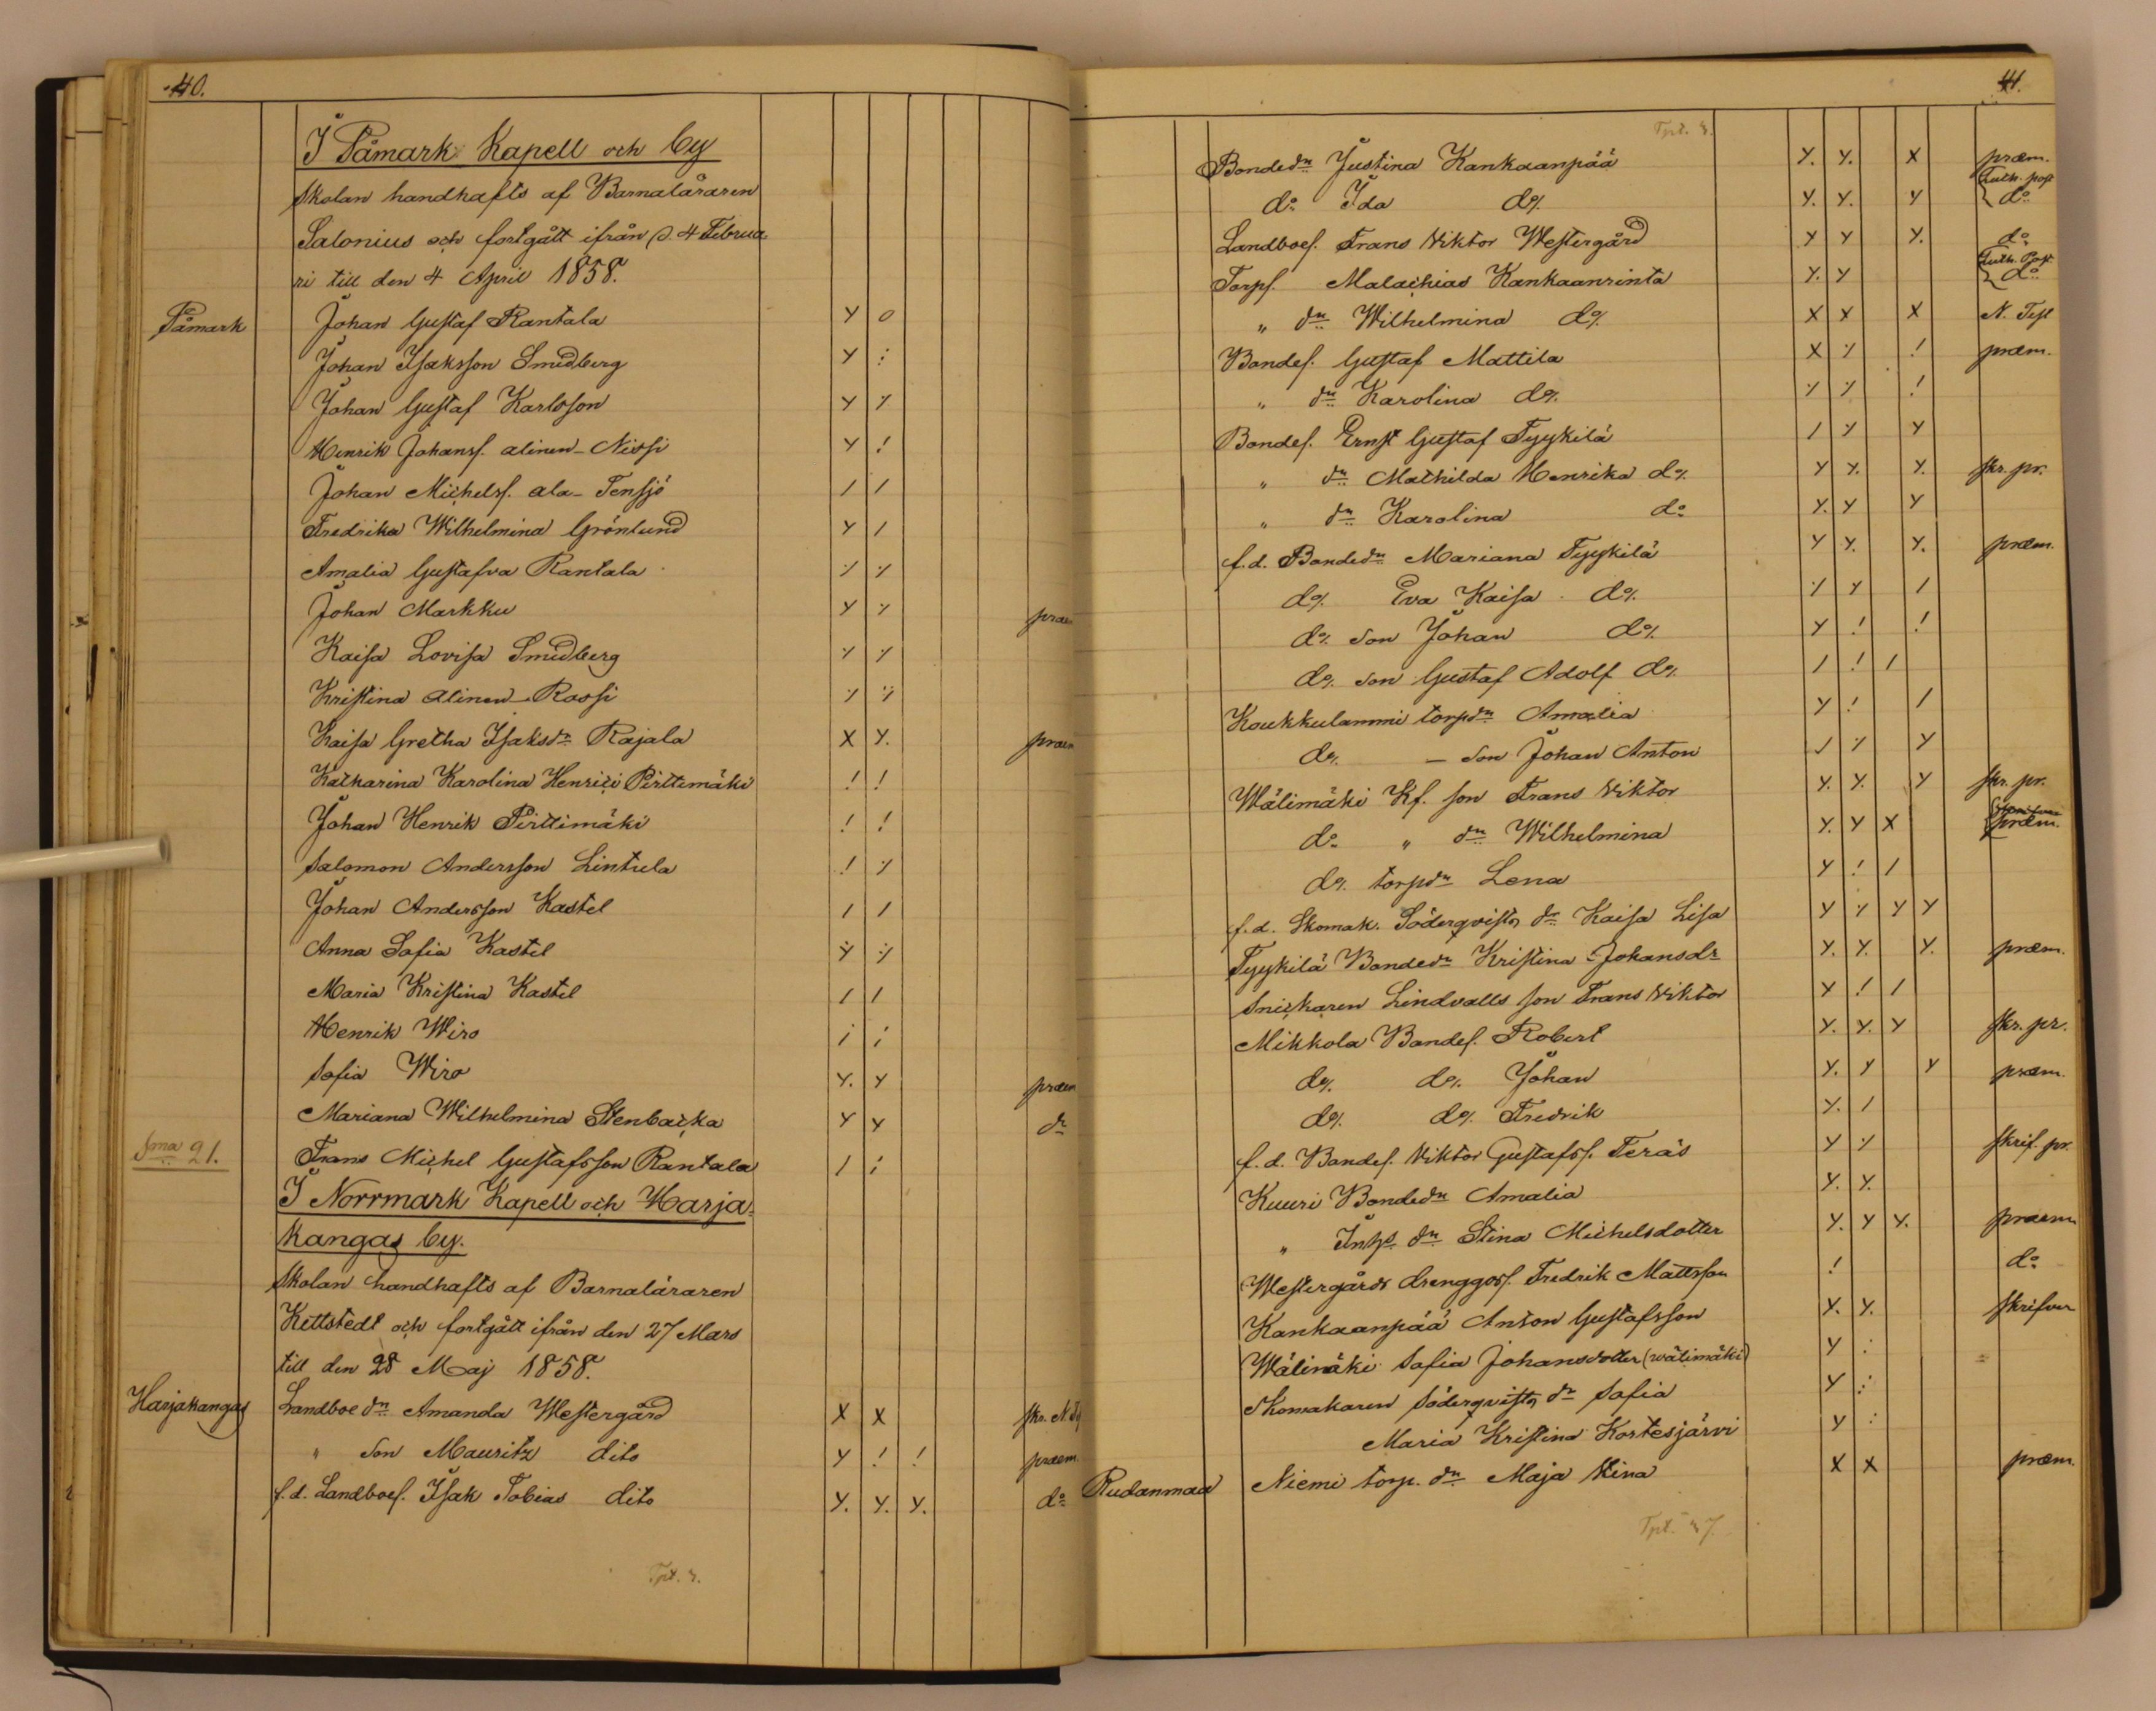 40.
I Påmark Kapell och by
Skolan handhafts af Barnaläraren
Salonius och fortgått ifrån d. 4 Februa
ri till den 4 April 1858.
Påmark Johan Gustaf Rantala Y 0
Johan Isaksson Smedberg Y :
Johan Gustaf Karlsson Y /
Henrik Johanss. alinen-Niossi Y !
Johan Michelss. ala-Tensjö / /
Fredrika Wilhelmina Grönlund Y /
Amalia Gustafva Rantala
Johan Markku Y præm
Kaisa Lovisa Smedberg
Kristina alinen-Rossi
Kaisa Gretha Isaksdr Rajala X Y. præm
Katharina Karolina Henrici Pirttimäki ! !
Johan Henrik Pirttimäki ! !
Salomon Andersson Lintula !
Johan Andersson Kastel / /
Anna Sofia Kastel
Maria Kristina Kastel / /
Henrik Wiro
Sofia Wiro Y. Y præm
Mariana Wilhelmina Stenbacka Y Y do
Sma 21. Frans Michel Gustafsson Rantala /
I Norrmark Kapell och Harja-
kangas by.
Skolan handhafts af Barnaläraren
Kettstedt och fortgått ifrån den 27 Mars
till den 28 Maj 1858.
Harjakangas Landboe dr Amanda Westergård X X skr. N. T
" son Mauritz dito Y ! ! præm.
f.d. Landboes. Isak Tobias dito Y. Y. Y. do
Tpt. 3.
41.
Tpt. 3.
Bondedr Justina Kankaanpää Y. Y. X præm.
Luth. post
do Ida do Y. Y. Y do
Landboes. Frans Viktor Westergård Y Y Y. do
Luth. Post.
Torps. Malachias Kankaanrinta Y. Y do
" dr Wilhelmina do X X X N. Test
Bondes. Gustaf Mattila X ! præm.
" dr Karolina do !
Bondes. Ernst Gustaf Tyykilä / Y
" dr Mathilda Henrika do Y Y. Y. skr. pr.
" dr Karolina do Y. Y Y
f.d. Bondedr Mariana Tyykilä Y Y. Y. præm.
do Eva Kaisa do Y /
do son Johan do Y ! !
do son Gustaf Adolf do / ! /
Koukkulammi torpdr Amalia Y ! /
do — son Johan Anton Y
Wälimäki Kf. son Frans Viktor Y. Y. Y skr. pr.
do " dr Wilhelmina Y. Y X præm.
do torpdr Lena Y ! /
f.d. Skomak. Söderqvists dr Kaisa Lisa Y Y Y
Tyykilä Bondedr Kristina Johansdr Y. Y. Y. præm.
Snickaren Lindvalls son Frans Viktor Y ! /
Mikkola Bondes. Robert Y. Y. Y skr. pr.
do do Johan Y. Y Y præm.
do do Fredrik Y. /
f.d. Bondes. Viktor Gustafss. Teräs Y skrif. pr.
Kuuri Bondedr Amalia Y. Y.
" Inhs. dr Stina Michelsdotter Y. Y Y. præm
Westergårds drenggoss. Fredrik Mattsson ! do
Kankaanpää Anton Gustafsson Y. Y. skrifver
Wälimäki Sofia Johansdotter (wälimäki) Y :
Skomakaren Söderqvists dr Sofia Y
Maria Kristina Kortesjärvi Y :
Rudanmaa Niemi torp. dr Maja Stina X X præm.
Tpt. 37